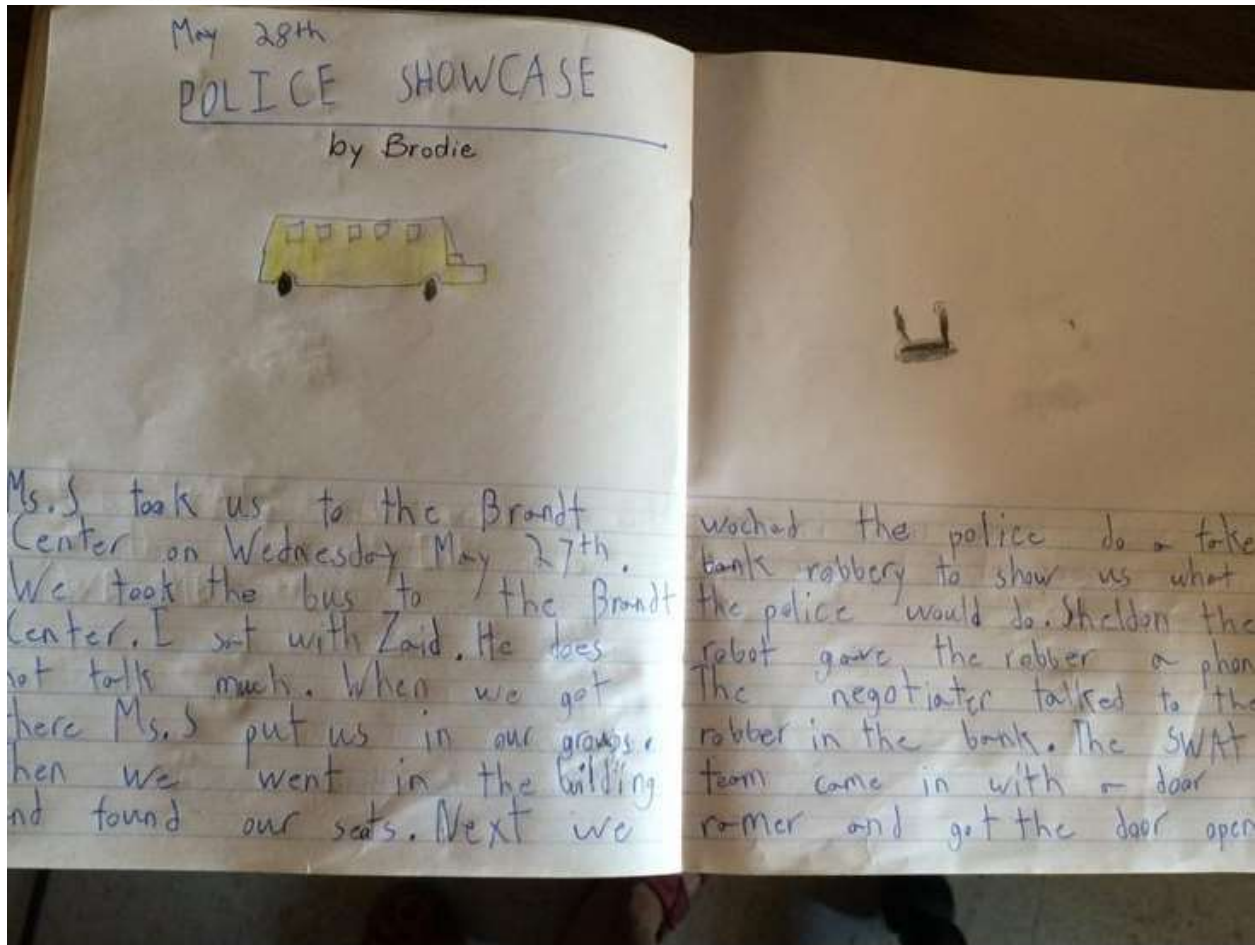 May 28th
POLICE SHOWCASE
by Brodie
Ms. S took us to the Brandt
Center on Wednesday May 27th.
We took the bus to the Brandt
Center. I sat with Zaid. He does
not talk much. When we got
here Ms. S put us in our groups.
hen we went in the bilding
nd found our seats. Next we
wached the police do a fake
bank robbery to show us what
the police would do. Sheldon the
robot gave the robber a phon
The negotiater talked to the
robber in the bank. The SWAT
team came in with a door
ramer and got the door open